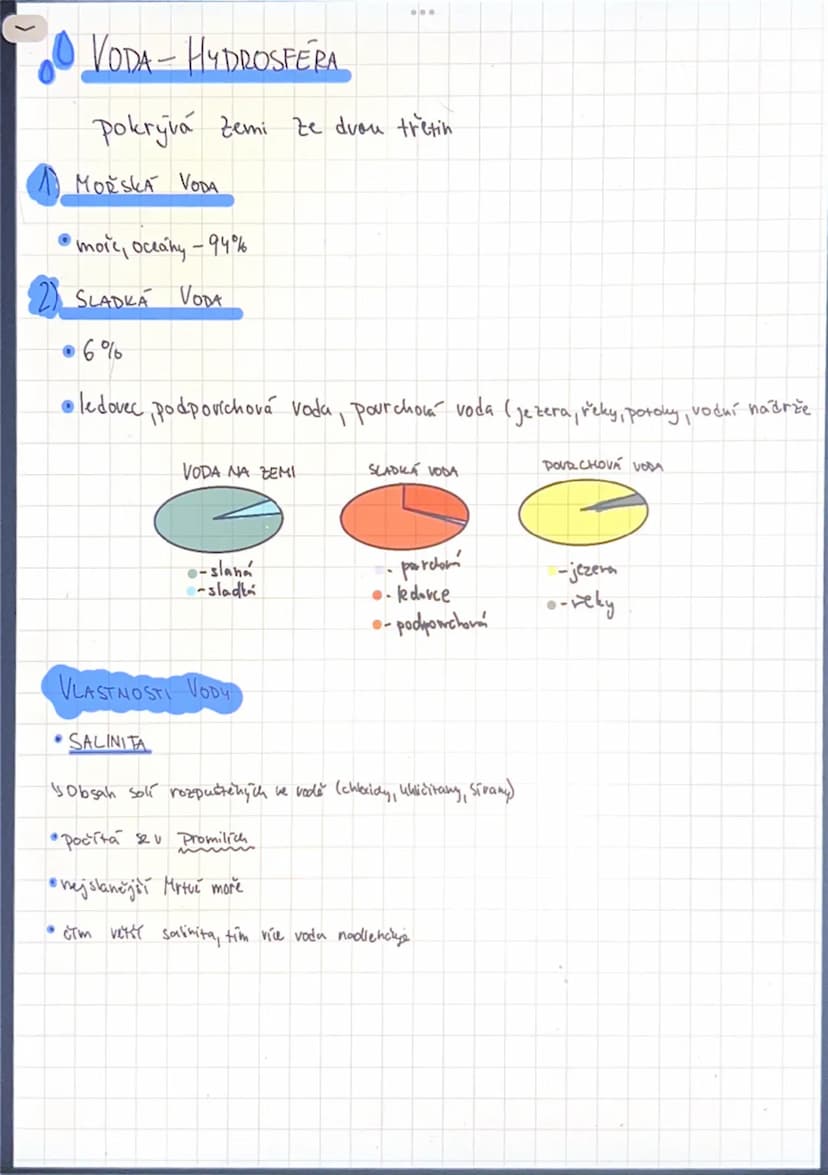 VODA – HYDROSFÉRA
pokrývá zemi ze dvou třetin
1) MOŘSKÁ VODA
• moře, oceány – 94%
2) SLADKÁ VODA
• 6%
• ledovec, podpovrchová voda, povrchová voda (jezera, řeky, potoky, vodní nádrže
VODA NA ZEMI
- slaná
- sladká
SLADKÁ VODA
- povrchová
- ledovce
- podpovrchová
POVRCHOVÁ VODA
- jezera
- řeky
VLASTNOSTI VODY
• SALINITA
↳ Obsah solí rozpuštěných ve vodě (chloridy, uhličitany, sírany)
• počítá se v promilích
• nejslanější Mrtvé moře
• čím větší salinita, tím více voda nadlehčuje